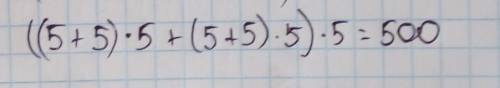 ((5+5)·5+(5+5)·5)·5=500